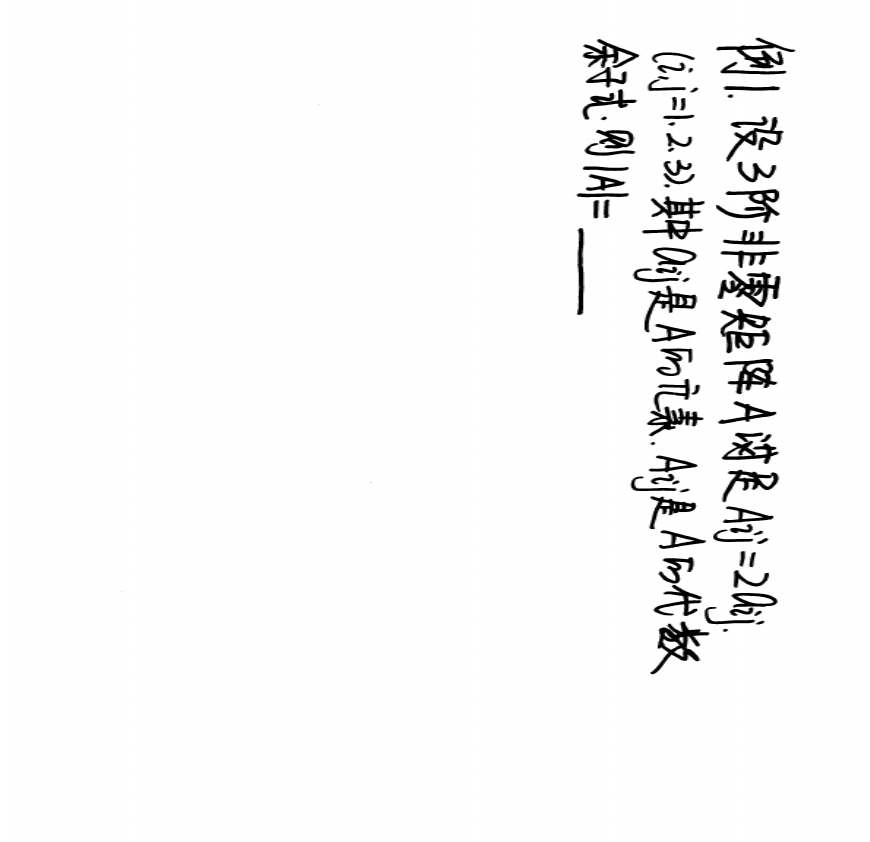 例1. 设3阶非零矩阵A满足Aij=2aij.
(i,j=1.2.3).其中aij是A的元素.Aij是A的代数
余子式.则|A|=____